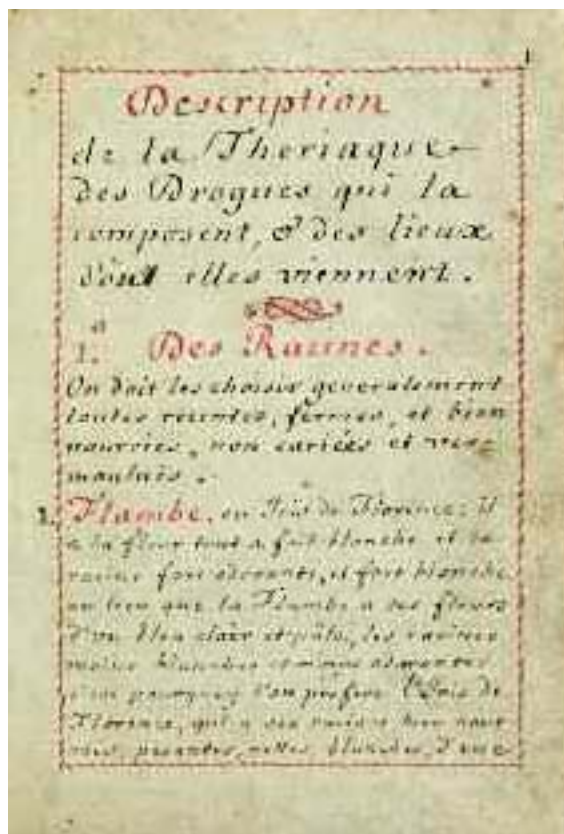 1
Description
de la Theriaque
des Drogues qui la
composent, & des lieux
d'out elles viennent.
1.º Des Racines.
On doit les choisir generalement
toutes recentes, fermes, et bien
nourries, non cariées et ver=
moulues.
1. Flambe, ou Iris de Florence; il
a la fleur tout a fait blanche et la
racine fort odorante, et fort blanche
au lieu que la Flambe a ses fleurs
d'un bleu clair et pâle, les racines
moins blanches et moins odorantes
c'est pourquoy l'on prefere l'Iris de
Florence, qui a ses racines bien nour
ries, pesantes, nettes, blanches, d'une